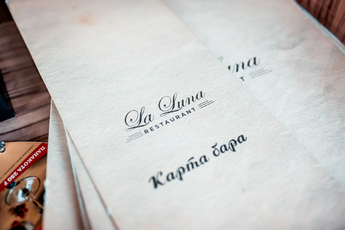 La Luna
RESTAURANT
Карта бара
una